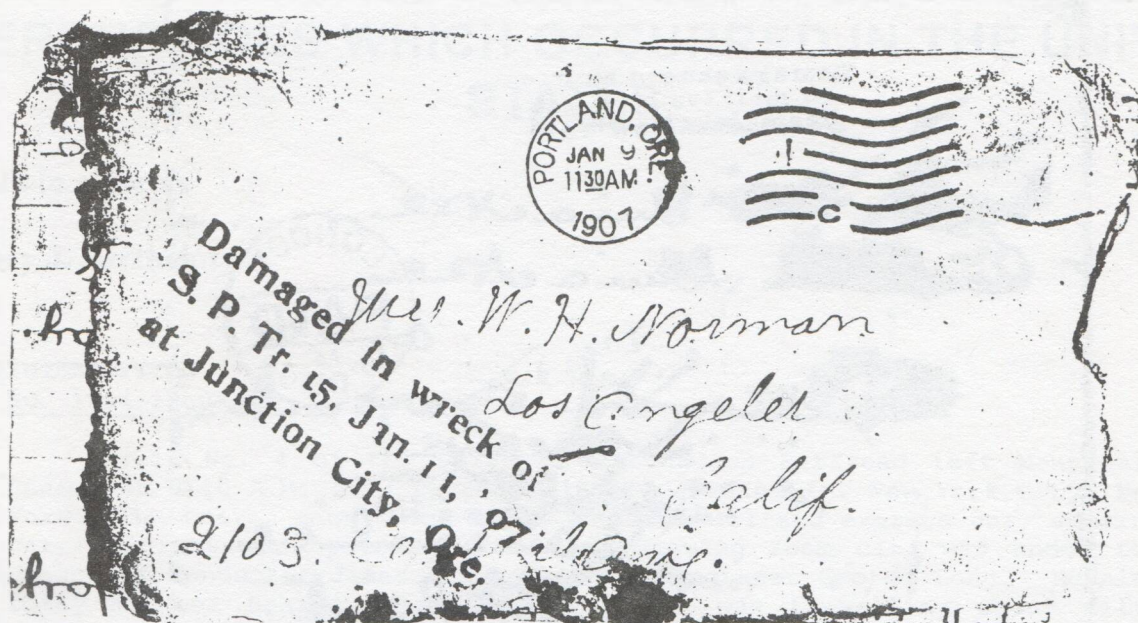 PORTLAND, ORE.
JAN 9
1130AM
1907
C
Damaged in wreck of
S. P. Tr. 15, Jan. 11, '07.
at Junction City, Ore.
Mrs. W. H. Norman
Los Angeles
Calif.
2103. Ave.